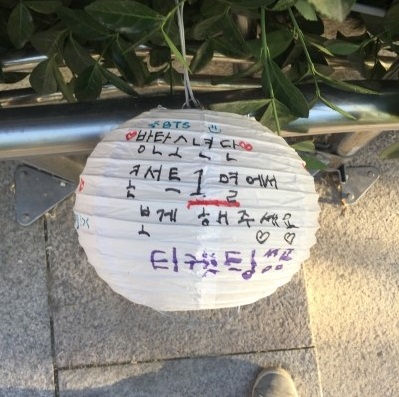 BTS
방탄소년단
콘서트 1열에서
보게 해주세요
티켓팅